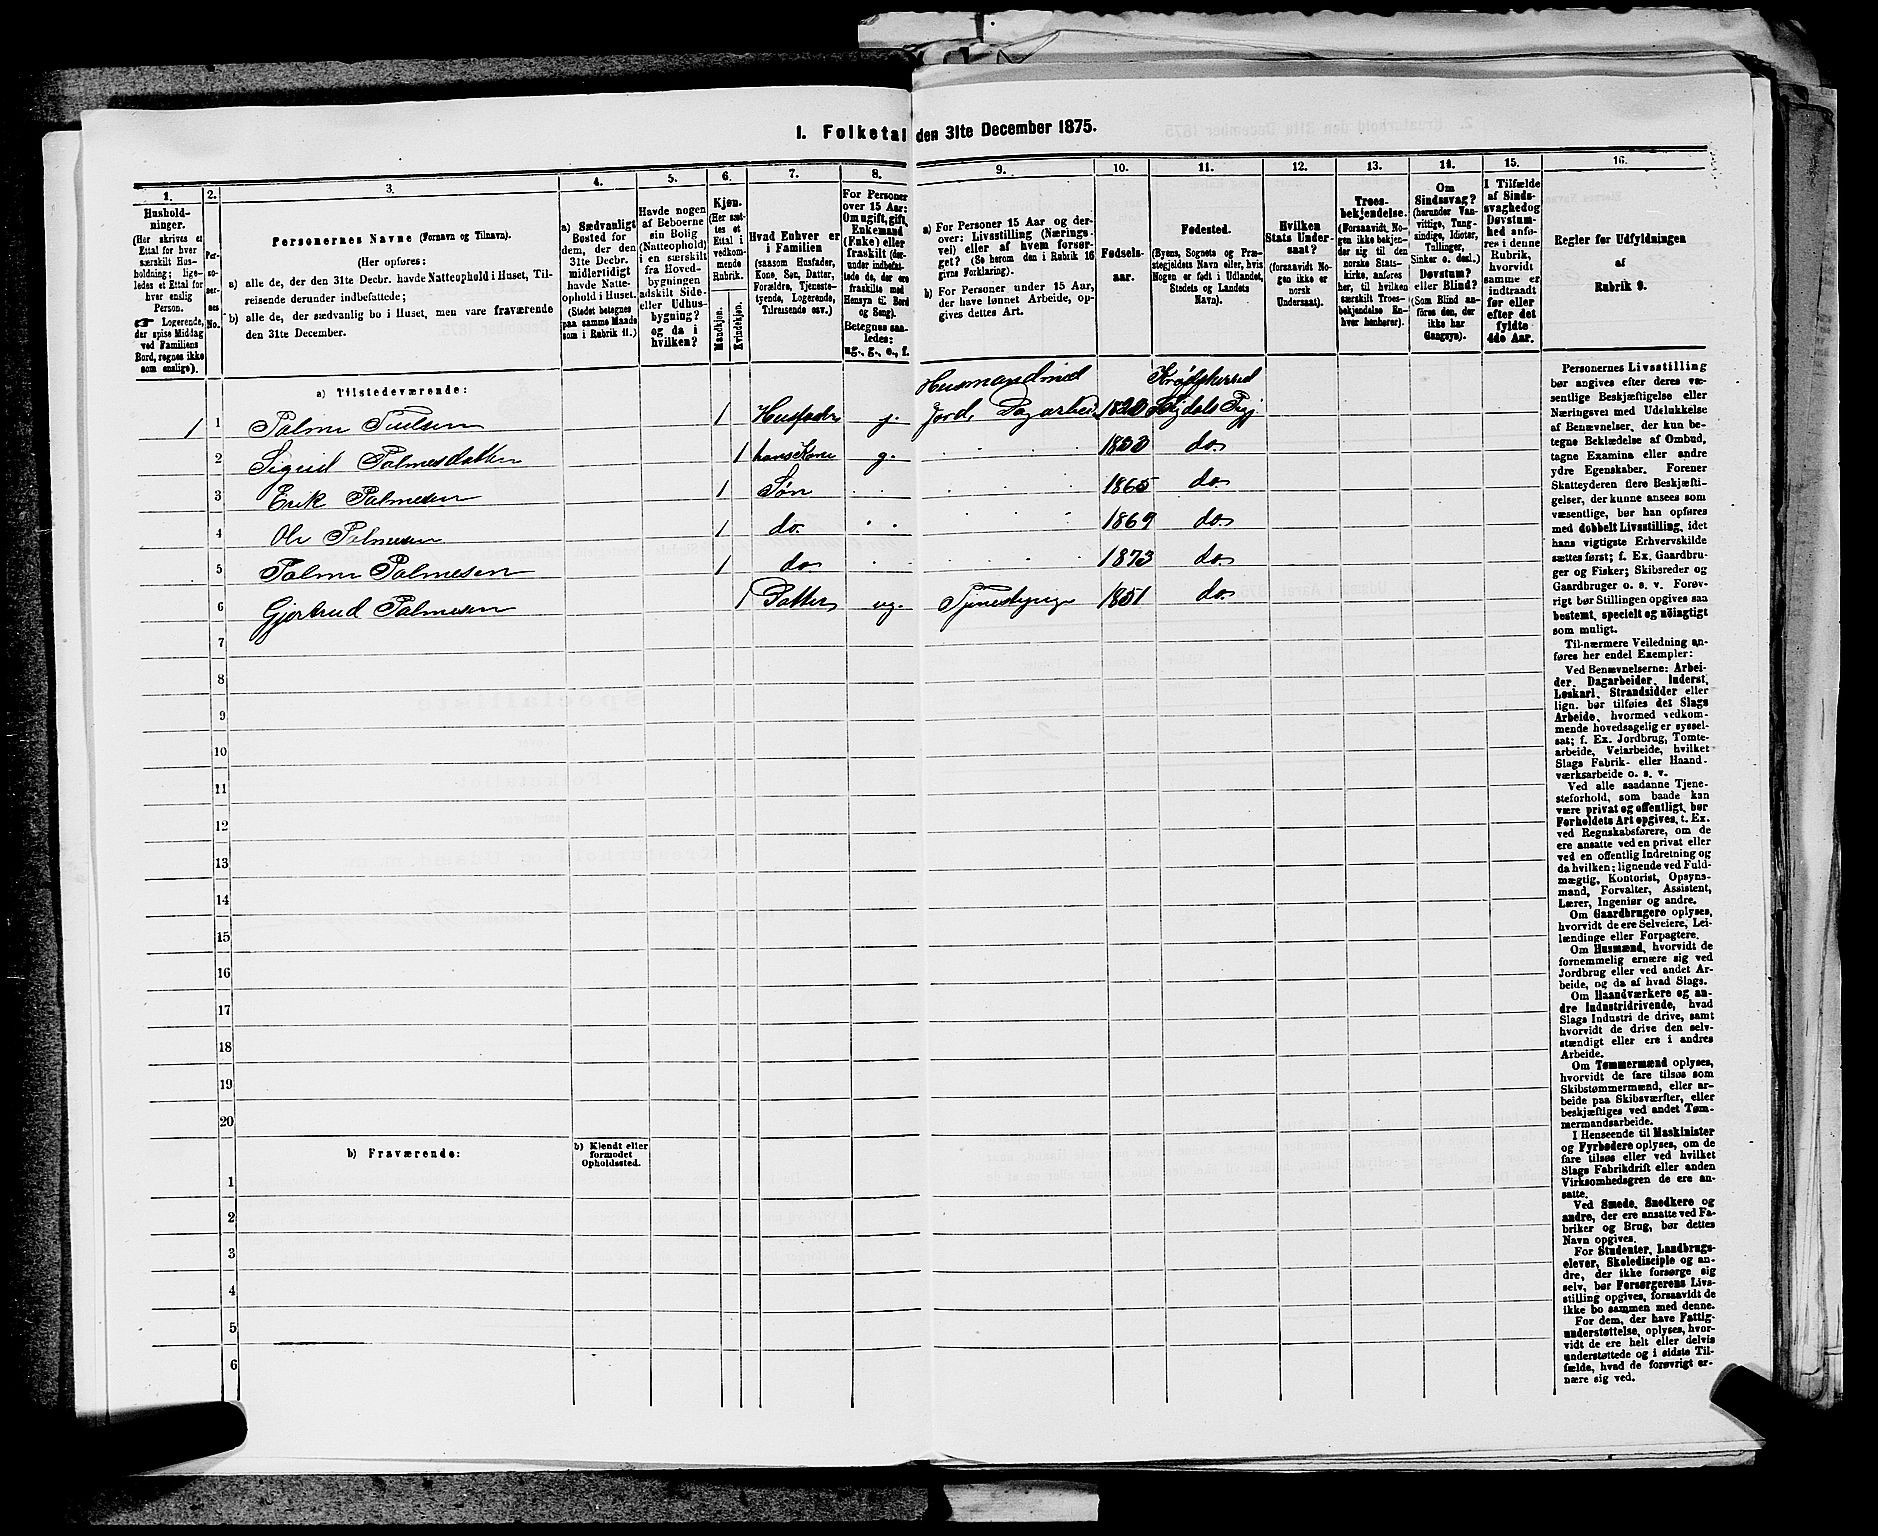 I. Folketal den 31te December 1875.
1. 2. 3. 4. 5. 6. 7. 8. 9. 10. 11. 12. 13. 14. 15. 16.
Hushold-
ninger.
(Her skrives et
Ettal for hver
særskilt Hus-
holdning; lige-
ledes et Ettal for
hver enslig
Person.
☛ Logerende,
der spise Middag
ved Familiens
Bord, regnes ikke
som enslige).
Per-
so-
ner-
nes
No.
Personernes Navne (Fornavn og Tilnavn).
(Her opføres:
a) alle de, der den 31te Decbr. havde Natteophold i Huset, Til-
reisende derunder indbefattede;
b) alle de, der sædvanlig bo i Huset, men vare fraværende
den 31te December.
a) Sædvanligt
Bosted for
dem, der den
31te Decbr.
midlertidigt
havde Natte-
ophold i Huset.
(Stedet betegnes
paa samme Maade
som i Rubrik 11.)
Havde nogen
af Beboerne
sin Bolig
(Natteophold)
i en særskilt
fra Hoved-
bygningen
adskilt Side-
eller Udhus-
bygning?
og da i
hvilken?
Kjøn.
(Her sæt-
tes et
Ettal i
vedkom-
mende
Rubrik.
Mandkjøn.
Kvindekjøn.
Hvad Enhver er
i Familien
(saasom Husfader,
Kone, Søn, Datter,
Forældre, Tjeneste-
tyende, Logerende,
Tilreisende osv.)
For Personer
over 15 Aar:
Om ugift, gift,
Enkemand
(Enke) eller
fraskilt (der-
under indbefat-
tede de, der ere
fraskilte med
Hensyn til Bord
og Seng).
Betegnes saa-
ledes:
ug., g., e., f.
a) For Personer 15 Aar og der-
over: Livsstilling (Nærings-
vei) eller af hvem forsør-
get? (Se herom den i Rubrik 16
givne Forklaring).
b) For Personer under 15 Aar,
der have lønnet Arbeide, op-
gives dettes Art.
Fødsels-
aar.
Fødested.
(Byens, Sognets og Præ-
stegjeldets Navn eller, hvis
Nogen er født i Udlandet,
Stedets og Landets
Navn).
Hvilken
Stats Under-
saat?
(forsaavidt No-
gen ikke er
norsk
Undersaat).
Troes-
bekjendelse.
(Forsaavidt, No-
gen ikke bekjen-
der sig til den
norske Stats-
kirke, anføres
her, til hvilken
særskilt Troes-
bekjendelse En-
hver henhører).
Om
Sindssvag?
(herunder Van-
vittige, Tung-
sindige, Idioter,
Tullinger,
Sinker o. desl.)
Døvstum?
eller Blind?
(Som Blind an-
føres den, der
ikke har
Gangsyn).
I Tilfælde
af Sinds-
svaghed og
Døvstum-
hed anfø-
res i denne
Rubrik,
hvorvidt
samme er
indtraadt
før eller
efter det
fyldte
4de Aar.
Regler for Udfyldningen
af
Rubrik 9.
a) Tilstedeværende:
Husmand med Krødsherred
1 1 Palme Truelsen 1 Husfader g. Jord, Dagarbeid 1820 Sigdals Prgj
2 Sigrid Palmesdatter 1 hans Kone g. 1823 do.
3 Erik Palmesen 1 Søn 1865 do
4 Ole Palmesen 1 do. 1869 do
5 Palme Palmesen 1 do 1873 do.
6 Gjertrud Palmesen 1 Datter ug. Tjenestepige 1851 do.
7
8
9
10
11
12
13
14
15
16
17
18
19
20
b) Fraværende:
b) Kjendt eller
formodet
Opholdssted.
1
2
3
4
5
6
Personernes Livsstilling
bør angives efter deres væ-
sentlige Beskjæftigelse eller
Næringsvei med Udelukkelse
af Benævnelser, der kun be-
tegne Beklædelse af Ombud,
tagne Examina eller andre
ydre Egenskaber. Forener
Skatteyderen flere Beskjæfti-
gelser, der kunne ansees som
væsentlige, bør han opføres
med dobbelt Livsstilling, idet
hans vigtigste Erhvervskilde
sættes først; f. Ex. Gaardbru-
ger og Fisker; Skibsreder og
Gaardbruger o. s. v. Forøv-
rigt bør Stillingen opgives saa
bestemt, specielt og nøiagtigt
som muligt.
Til nærmere Veiledning an-
føres her endel Exempler:
Ved Benævnelserne: Arbei-
der, Dagarbeider, Inderst,
Løskarl, Strandsidder eller
lign. bør tilføies det Slags
Arbeide, hvormed vedkom-
mende hovedsagelig er syssel-
sat; f. Ex. Jordbrug, Tomte-
arbeide, Veiarbeide, hvilket
Slags Fabrik- eller Haand-
værksarbeide o. s. v.
Ved alle saadanne Tjene-
steforhold, som baade kan
være privat og offentligt, bør
Forholdets Art opgives, t. Ex.
ved Regnskabsførere, om de
ere ansatte ved en privat eller
ved en offentlig Indretning og
da hvilken; lignende ved Fuld-
mægtig, Kontorist, Opsyns-
mand, Forvalter, Assistent,
Lærer, Ingeniør og andre.
Om Gaardbrugere oplyses,
hvorvidt de ere Selveiere, Lei-
lændinge eller Forpagtere.
Om Husmænd, hvorvidt de
fornemmelig ernære sig ved
Jordbrug eller ved andet Ar-
beide, og da af hvad Slags.
Om Haandværkere og an-
dre Industridrivende, hvad
Slags Industri de drive, samt
hvorvidt de drive den selv-
stændigt eller ere i andres
Arbeide.
Om Tømmermænd oplyses,
hvorvidt de fare tilsøs som
Skibstømmermænd, eller ar-
beide paa Skibsværfter, eller
beskjæftiges ved andet Tøm-
mermandsarbeide.
I Henseende til Maskinister
og Fyrbødere oplyses, om de
fare tilsøs eller ved hvilket
Slags Fabrikdrift eller anden
Virksomhedsgren de ere an-
satte.
Ved Smede, Snedkere og
andre, der ere ansatte ved Fa-
briker og Brug, bør dettes
Navn opgives.
For Studenter, Landbrugs-
elever, Skoledisciple og an-
dre, der ikke forsørge sig
selv, bør Forsørgerens Livs-
stilling opgives, forsaavidt de
ikke bo sammen med denne.
For dem, der have Fattig-
understøttelse, oplyses, hvor-
vidt de ere helt eller delvis
understøttede og i sidste Til-
fælde, hvad de forøvrigt er-
nære sig ved.